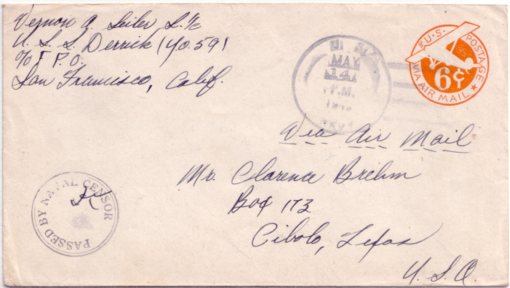 Vernon A. Seiler S. 1/c
U. S. S. Derrick (YO.59)
% F. P. O.
San Francisco, Calif.
MAY
24
P.M.
U.S. POSTAGE
6¢
VIA AIR MAIL
Via Air Mail
Mr. Clarence Brehm
Box 173
Cibolo, Texas
U. S. A.
PASSED BY NAVAL CENSOR